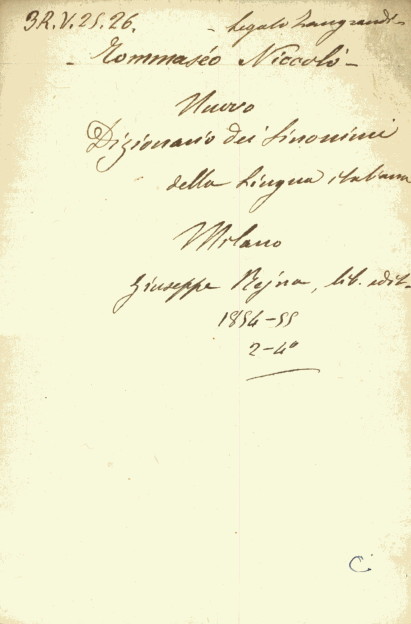 3R.V.25.26. - Legato Zangrandi -
- Tommaséo Niccolò -
Nuovo
Dizionario dei Sinonimi
della Lingua italiana
Milano
Giuseppe Rejna, lib. edit.
1854-55
2-4°
C